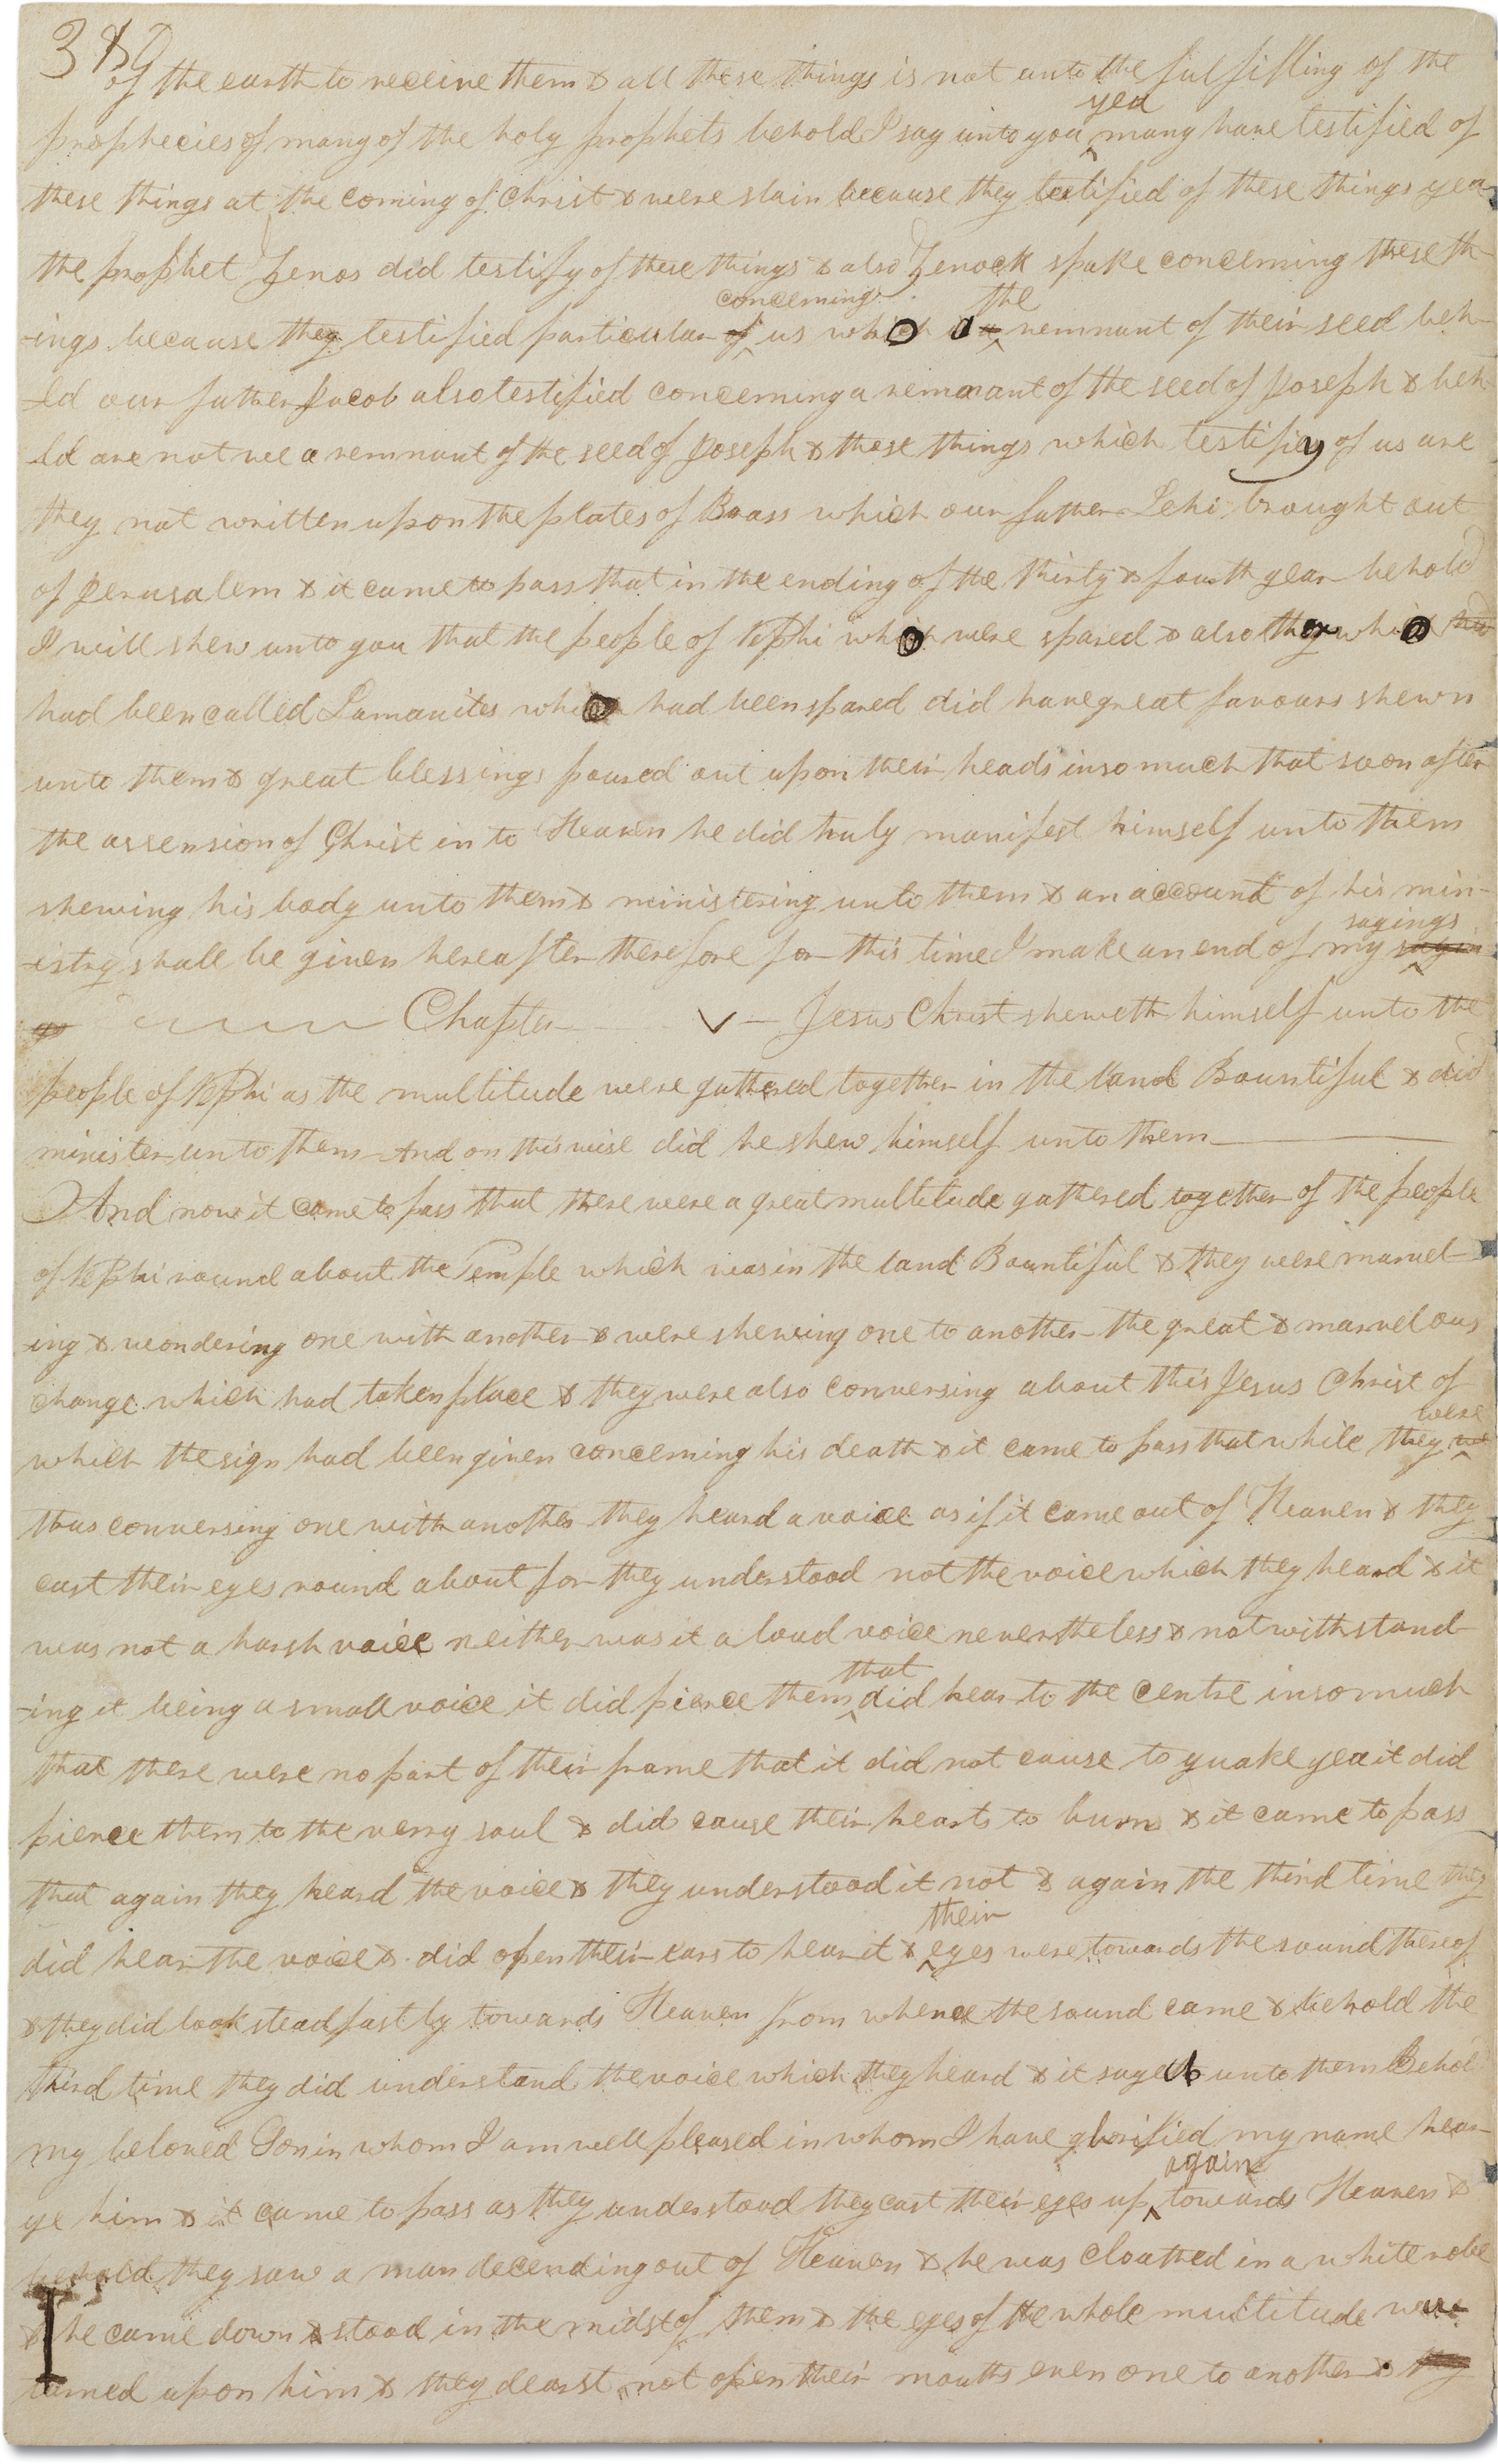 389
of the earth to receive them & all these things is not unto the fulfilling of the
yea
prophecies of many of the holy prophets behold I say unto you many have testified of
these things at the coming of Christ & were slain because they testified of these things yea
the prophet Zenos did testify of these things & also Zenock spake concerning these th-
concerning the
-ings because they testified particular of us which are remnant of their seed beh-
-ld our father Jacob also testified concerning a remnant of the seed of Joseph & beh-
-ld are not we a remnant of the seed of Joseph & these things which testifiey of us are
they not written upon the plates of Brass which our father Lehi brought out
of Jerusalem & it came to pass that in the ending of the thirty & fourth year behold
I will shew unto you that the people of Nephi who were spared & also who
had been called Lamanites who had been spared did have great favours shewn
unto them & great blessings poured out upon their heads insomuch that soon after
the assension of Christ in to Heaven he did truly manifest himself unto them
shewing his body unto them & ministering unto them & an account of his min-
sayings
-istry shall be given hereafter therefore for this time I make an end of my sayin
gs Chapter V — Jesus Christ sheweth himself unto the
people of Nephi as the multitude were gathered together in the land Bountiful & did
minister unto them And on this wise did he shew himself unto them
And now it came to pass that there were a great multitude gathered together of the people
of Nephi round about the Temple which was in the land Bountiful & they were marvel-
-ing & wondering one with another & were shewing one to another the great & marvelous
change which had taken place & they were also conversing about this Jesus Christ of
were
which the sign had been given concerning his death & it came to pass that while they
thus conversing one with another they heard a voice as if it came out of Heaven & they
cast their eyes round about for they understood not the voice which they heard & it
was not a harsh voice neither was it a loud voice nevertheless & notwithstand-
that
-ing it being a small voice it did pierce them did hear to the centre insomuch
that there were no part of their frame that it did not cause to quake yea it did
pierce them to the very soul & did cause their hearts to burn & it came to pass
that again they heard the voice & they understood it not & again the third time they
their
did hear the voice & did open their ears to hear it & eyes were towards the sound thereof
& they did look steadfastly towards Heaven from whence the sound came & behold the
third time they did understand the voice which they heard & it sayeth unto them Behol
my beloved Son in whom I am well pleased in whom I have glorified my name hear
again
ye him & it came to pass as they understood they cast their eyes up towards Heaven &
behold they saw a man decending out of Heaven & he was cloathed in a white robe
& he came down & stood in the midst of them & the eyes of the whole multitude were
turned upon him & they dearst not open their mouths even one to another & they